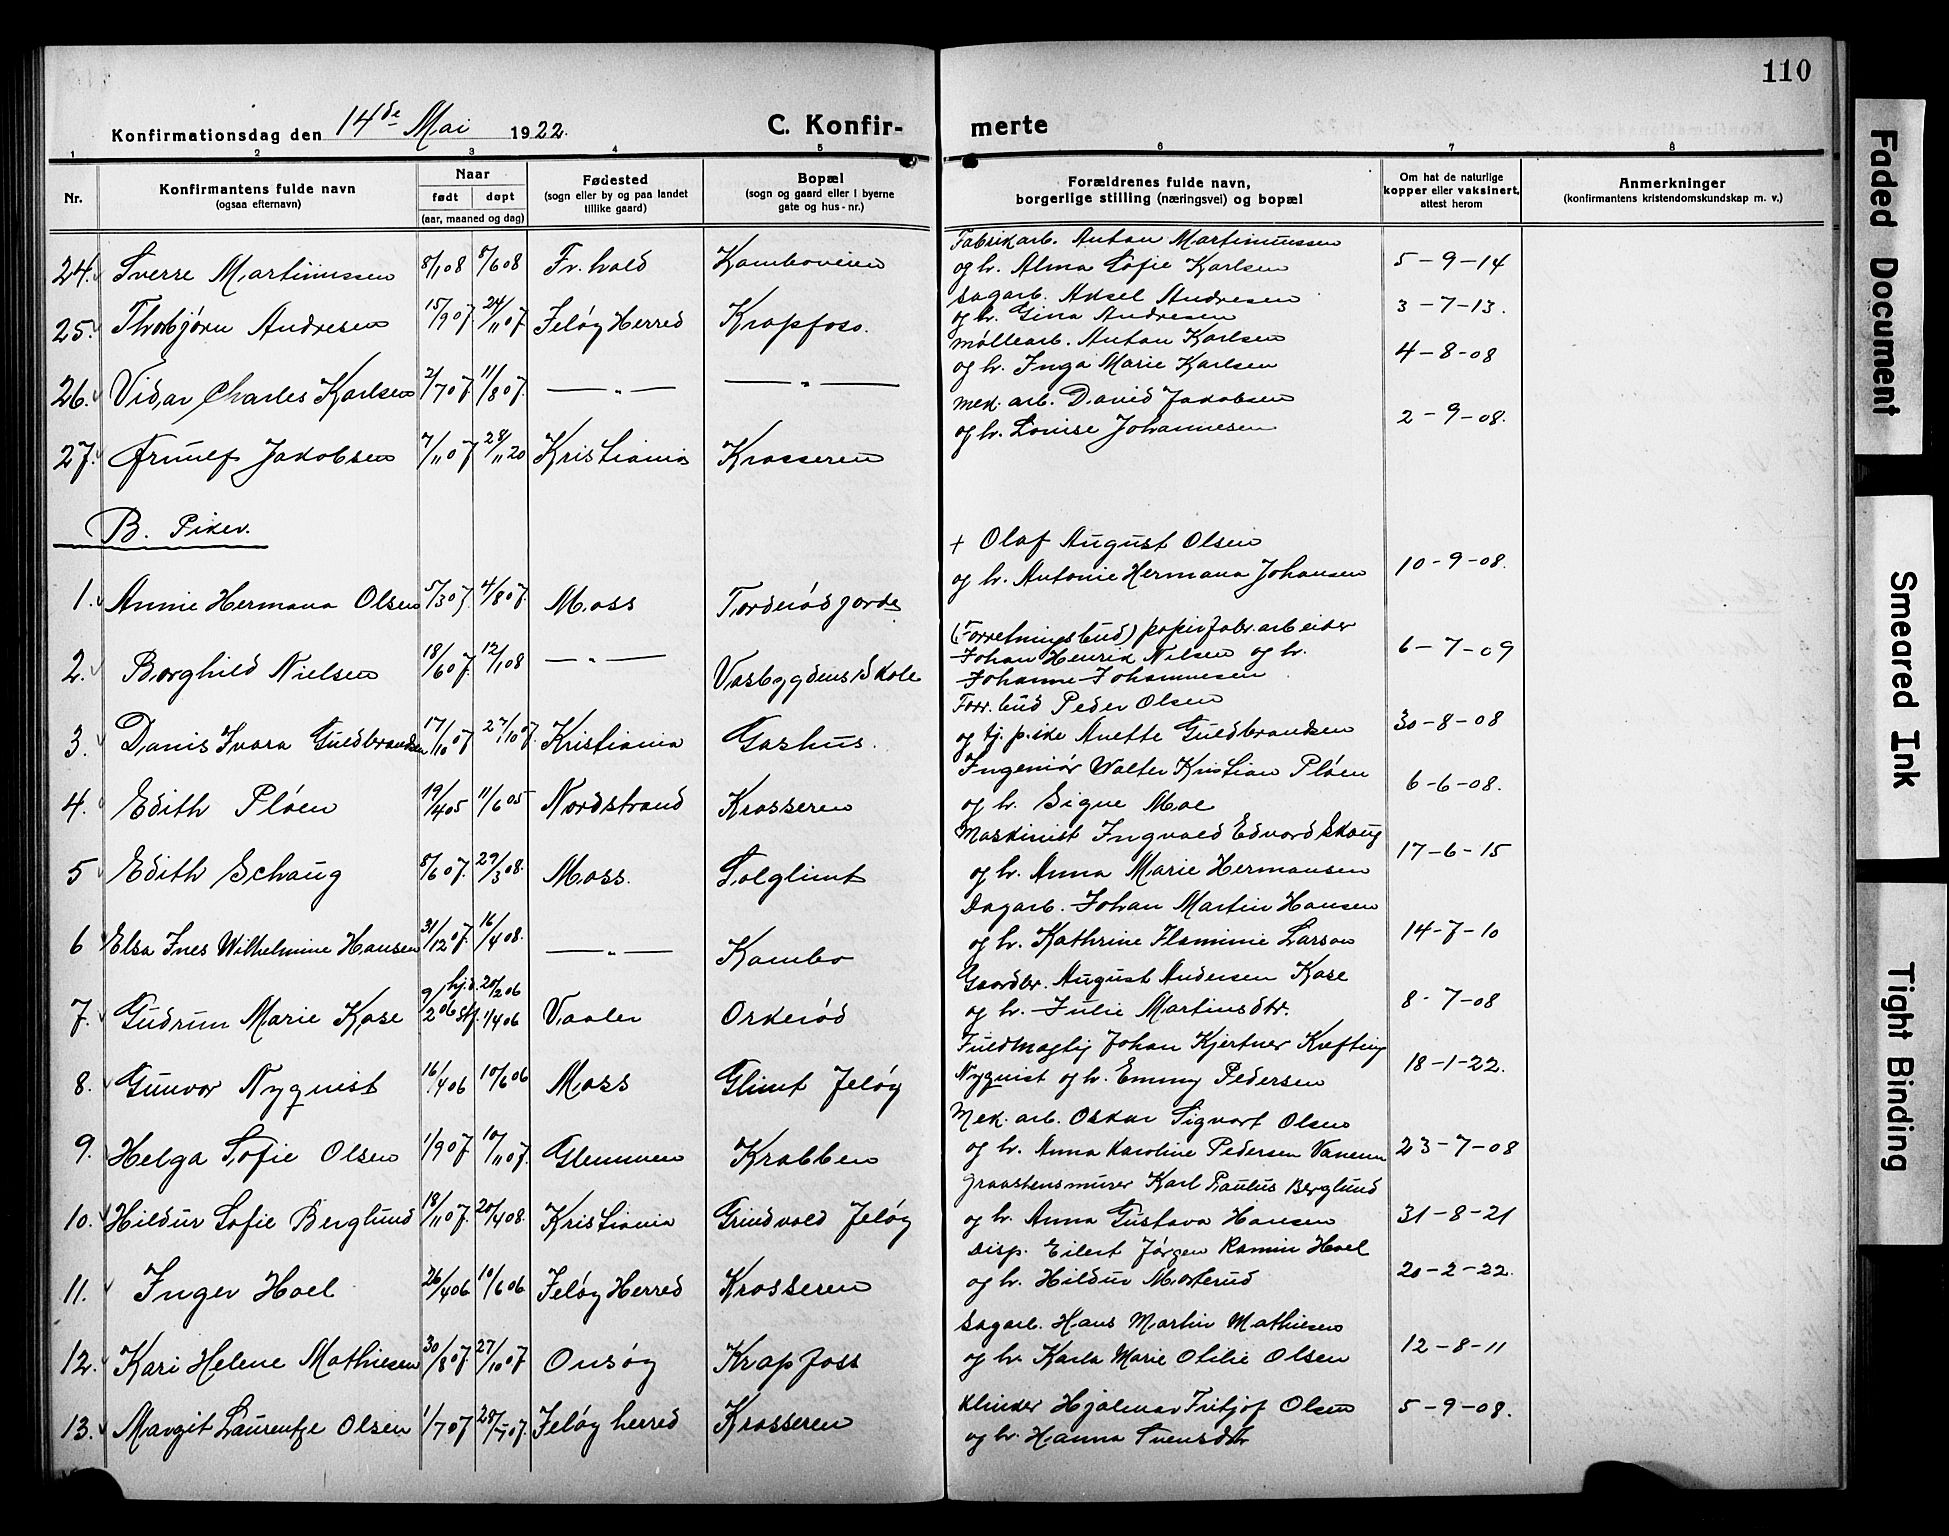 110
Konfirmationsdag den 14de Mai 1922. C. Konfir- merte
1 2 3 4 5 6 7 8
Nr. Konfirmantens fulde navn (ogsaa efternavn) Naar født døpt (aar, maaned og dag) Fødested (sogn eller by og paa landet tillike gaard) Bopæl (sogn og gaard eller i byerne gate og hus-nr.) Forældrenes fulde navn, borgerlige stilling (næringsvei) og bopæl Om hat de naturlige kopper eller vaksinert, attest herom Anmerkninger (konfirmantens kristendomskundskap m. v.)
24. Sverre Martinussen 8/1 08 8/6 08 Fr.hald Kamboveien Fabrikarb. Anton Martinussen
og h. Alma Sofie Karlsen 5-9-14
25. Thorbjørn Andresen 15/9 07 24/11 07. Jeløy Herred Krapfoss. Sagarb. Aksel Andresen
og h. Gina Andresen 3-7-13.
26. Vidar Charles Karlsen 2/7 07. 11/8 07. —„— —„— Møllearb. Anton Karlsen
og h. Inga Marie Karlsen 4-8-08
27. Arnulf Jakobsen 7/11 07 28/11 20 Kristiania Krosseren Mek. arb. David Jakobsen
og h. Louise Johannesen 2-9-08.
B. Piker.
1. Annie Hermana Olsen 5/3 07. 4/8 07. Moss Tordrødgorde + Olaf August Olsen
og h. Antonie Hermana Johansen 10-9-08.
2. Borghild Nielsen 18/6 07. 12/1 08 —„— Vasbygdens Skole (Forretningsbud) papirfabr.arbeider
Johan Henrik Nilsen og h.
Johanne Johannesen 6-7-09
3. Danis Ivara Guldbrandsen 17/10 07 27/10 07. Kristiania Gashus. Forr. bud Peder Olsen
og tj. pike Anette Guldbrandsen 30-8-08
4. Edith Pløen 19/4 05 11/6 05 Nordstrand Krosseren Ingeniør Walter Kristian Pløen
og h. Signe Moe 6-6-08.
5 Edith Schaug 8/6 07. 29/3 08. Moss. Solglimt Maskinist Ingvald Edvard Skaug
og h. Anna Marie Hermansen 17-6-15
6 Elsa Ines Wilhelmine Hansen 31/12 07. 16/4 08. —„— Kambo Dagarb. Johan Martin Hansen
og h. Kathrine Flaminie Larson 14-7-10
7. Gudrun Marie Kase 9/2 06 hj.d. 20/2 06 stf. 1/4 06 Vaaler Orkerød Gaardbr. August Andersen Kase
og h. Julie Martinsdtr. 8-7-08
8. Gunvor Nyquist 16/4 06 10/6 06 Moss Glimt Jeløy Fuldmægtig Johan Kjertner Krefting
Nyquist og h. Emmy Pedersen 18-1-22.
9. Helga Sofie Olsen 1/9 07. 10/11 07. Glemmen Krabben Mek. arb. Oskar Sigvart Olsen
og h. Anna Karoline Pedersen Vanem 23-7-08
10. Hildur Sofie Berglund 18/11 07. 20/4 08. Kristiania Grindvold Jeløy Graastensmurer Karl Paulus Berglund
og h. Anna Gustava Hansen 31-8-21
11. Inger Hoel 26/4 06 10/6 06 Jeløy Herred Krosseren Disp. Eilert Jørgen Ramin Hoel
og h. Hildur Mosterud 20-2-22.
12. Kari Helene Mathiesen 30/8 07 27/10 07. Onsøy Krapfoss Sagarb. Hans Martin Mathiesen
og h. Karla Marie Otilie Olsen 12-8-11
13. Margit Laurentze Olsen 1/7 07 28/7 07. Jeløy herred Krosseren Klinker Hjalmar Fritjof Olsen
og h. Hanna Svensdtr 5-9-08.
Faded Document
Smeared Ink
Tight Binding